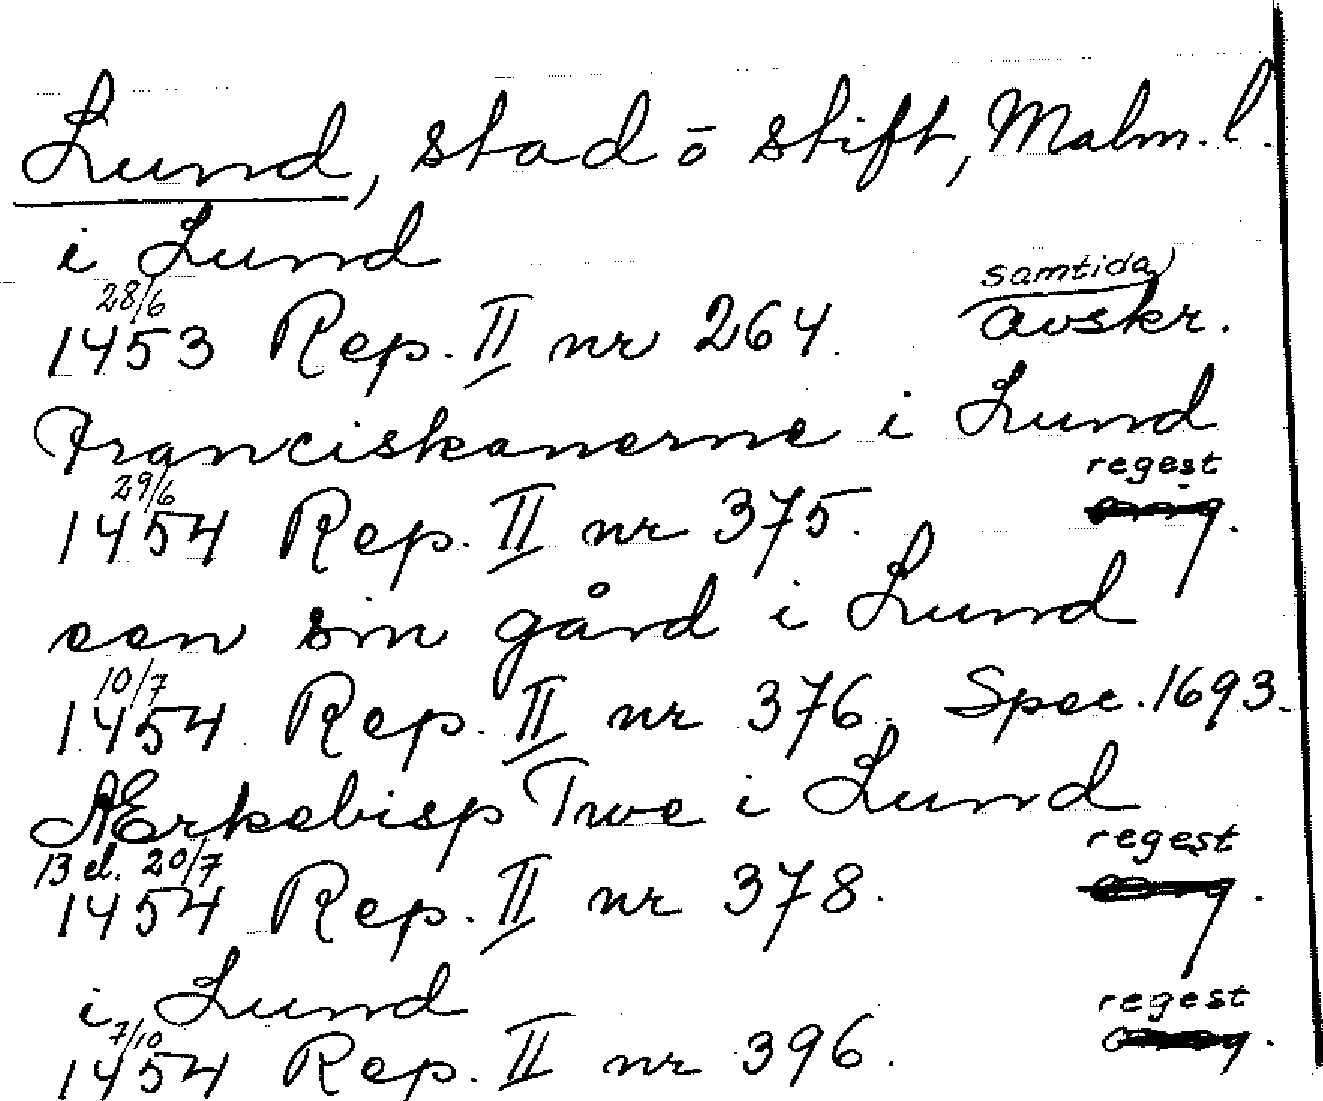 Lund, stad o stift, Malm. l.
i Lund
28/6 samtida
1453 Rep. II nr 264. avskr.
Franciskanerne i Lund
29/6 regest
1454 Rep. II nr 375.
een sin gård i Lund
10/7
1454 Rep. II nr 376. Spec. 1693.
ÆErkebisp Twe i Lund
Bel. 20/7 regest
1454 Rep. II nr 378.
i Lund
7/10 regest
1454 Rep. II nr 396.